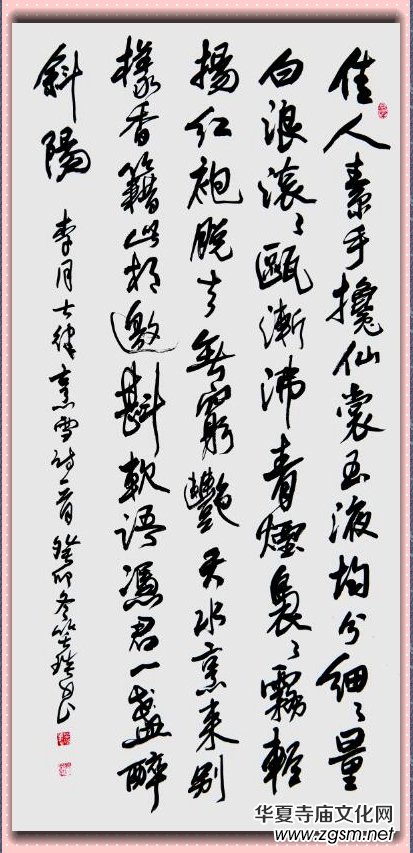 佳人素手攙仙裳玉液均分細々量
白浪滚々甌漸沸青煙裊々霧輕
揚红袍脱去無窮艷天水烹来别
樣香籍此相邀斟軟語憑君一盞醉
斜陽
李月七律烹雪诗一首 癸卯冬
华夏寺庙文化网
www.zgsm.net